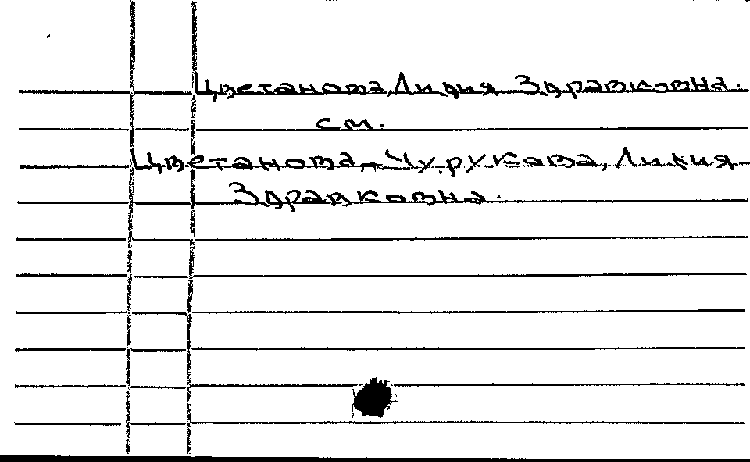 Цветанова, Лидия Здравковна.
см.
Цветанова-Чурукова, Лидия
Здравковна.